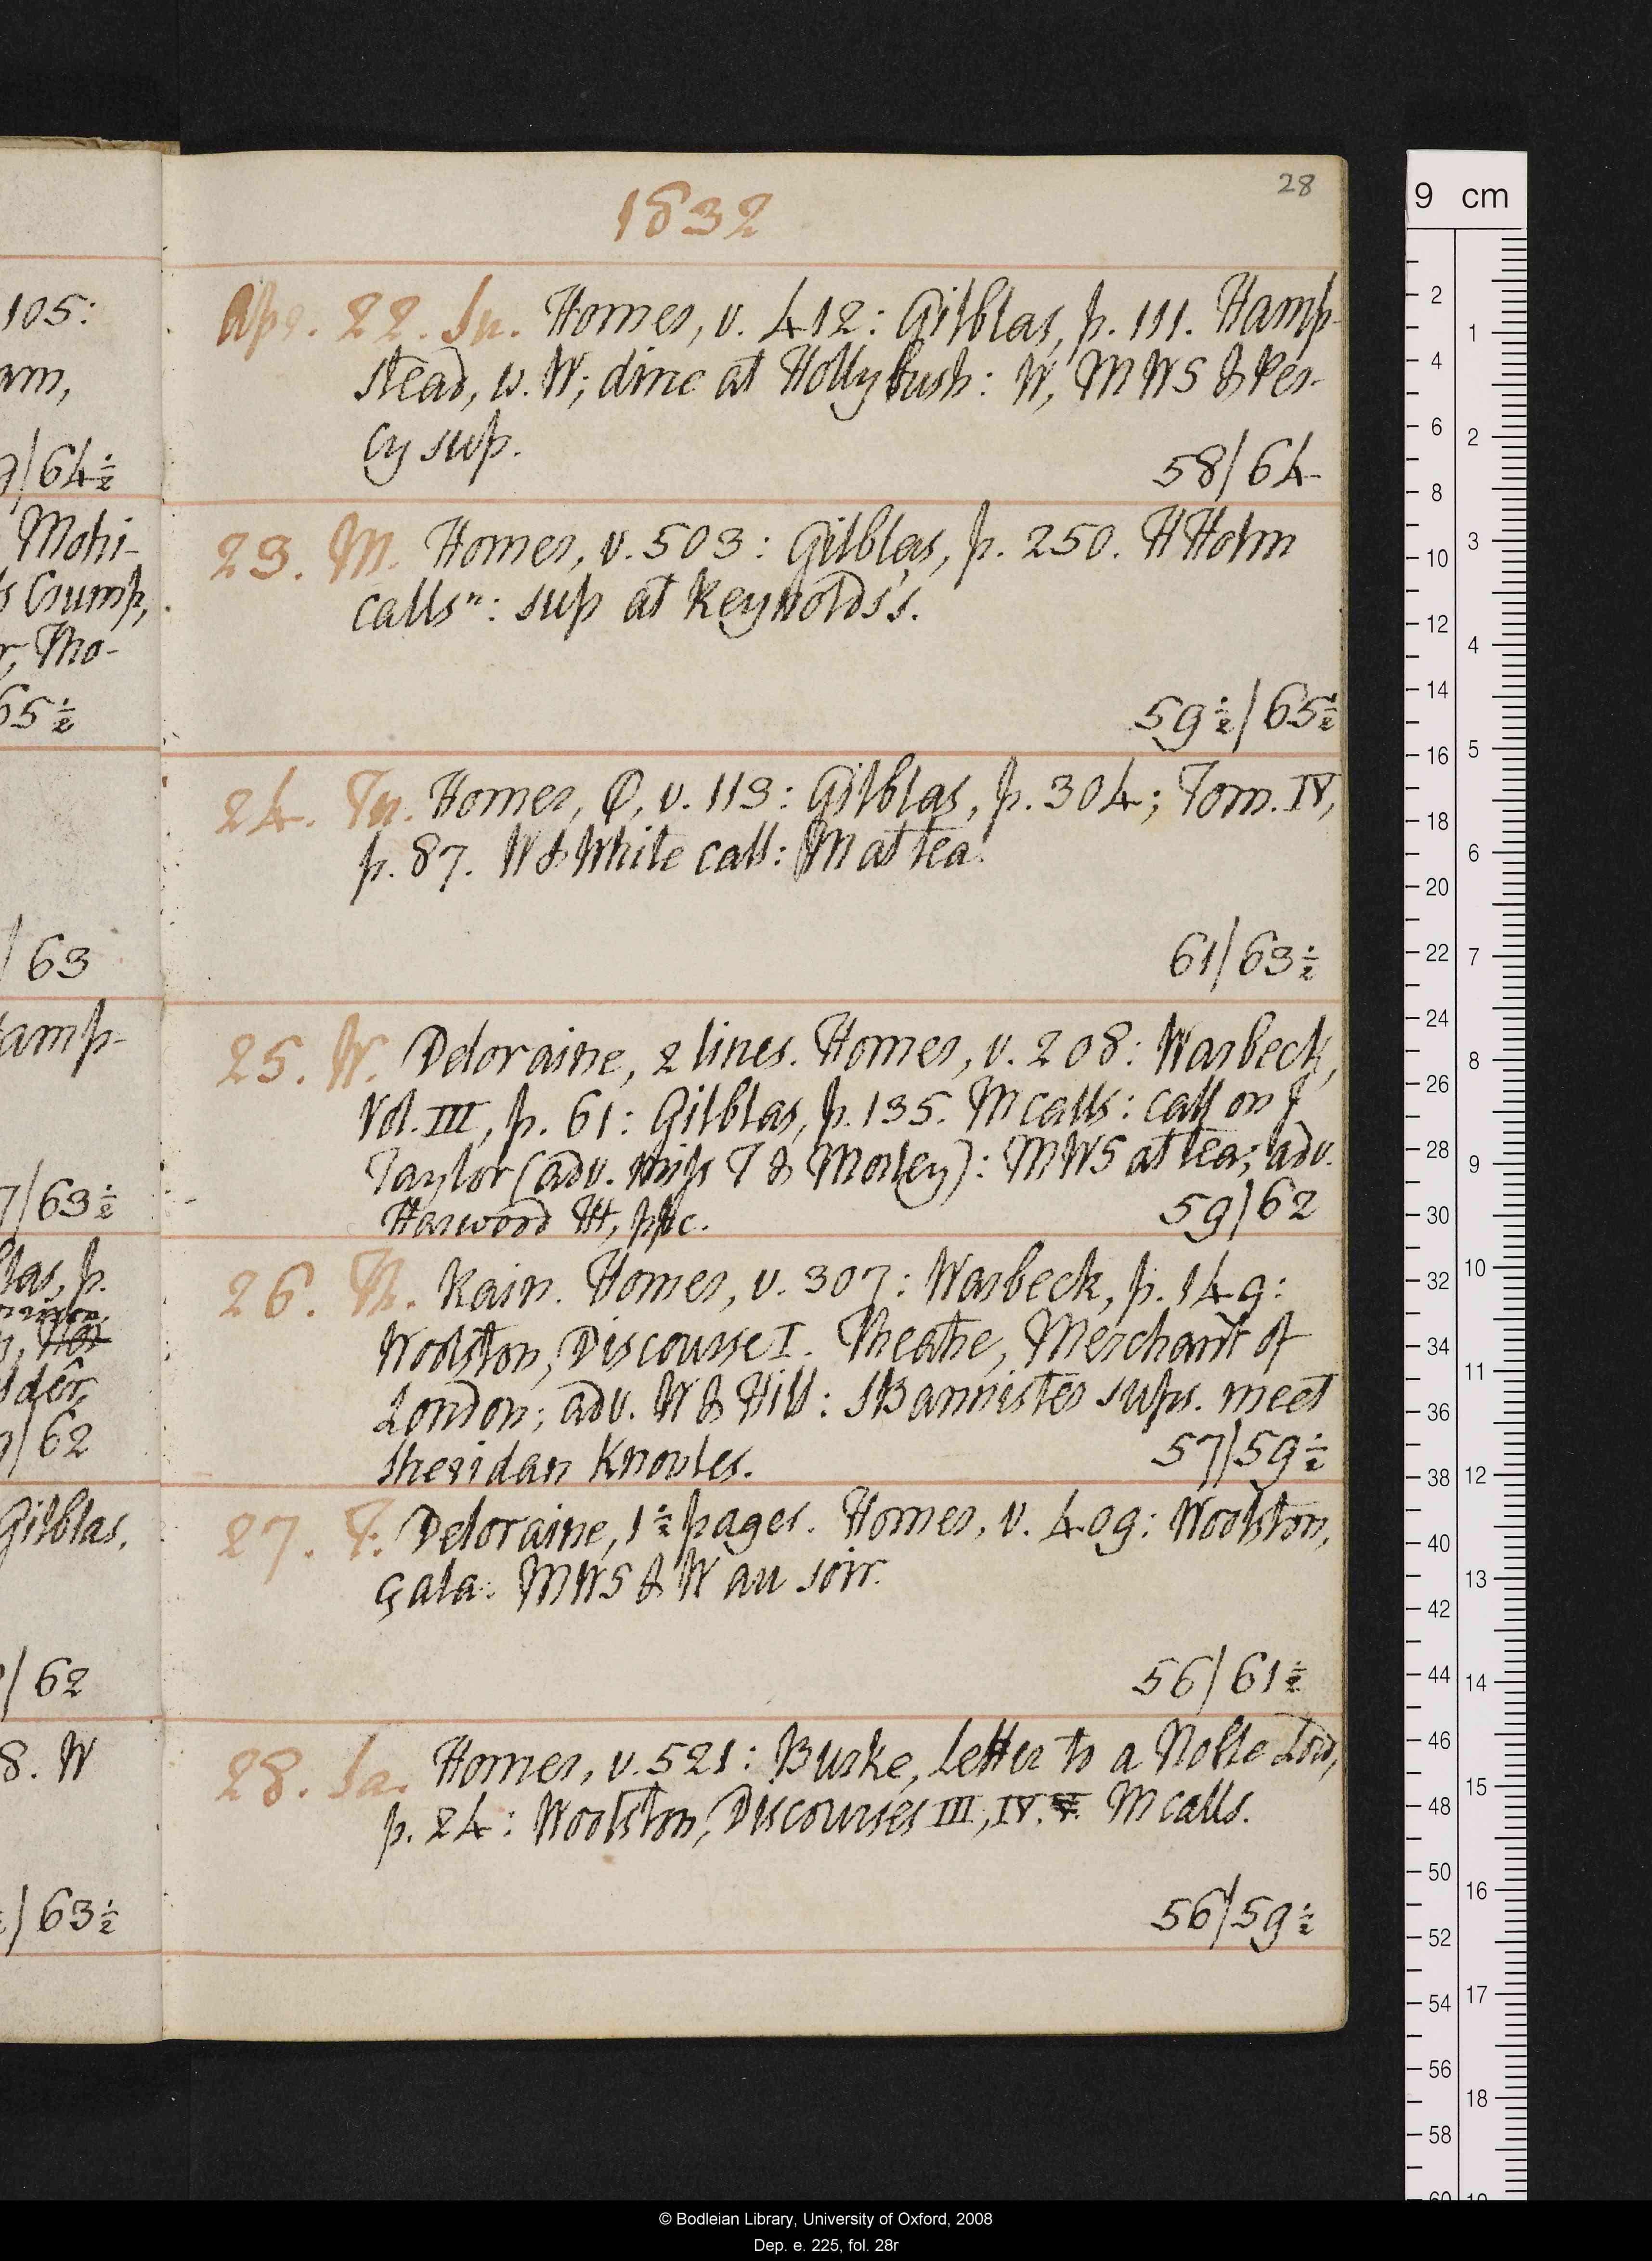 28
1832
105:
am,
64½
Mohi-
s Crump,
r, Tho-
65½
63
amp-
63½
las, p.
dêr,
62
Gilblas,
62
8. W
63½
Apr. 22. Su. Homer, v. 412: Gilblas, p. 111. Hamp-
stead, w. W; dine at Hollybush: W, MWS & Per-
cy sup.
58/64
23. M. Homer, v. 503: Gilblas, p. 250. H Holm
callsⁿ: sup at Reynolds's.
59½/65½
24. Tu. Homer, Φ, v. 113: Gilblas, p. 304; Tom. IV,
p. 87. W & White call: M at tea.
61/63½
25. W. Deloraine, 2 lines. Homer, v. 208: Warbeck,
Vol. III, p. 61: Gilblas, p. 135. M calls: call on J
Taylor (adv. miss T & Morley): MWS at tea; adv.
Harwood Ht, ppc.
59/62
26. Th. Rain. Homer, v. 307: Warbeck, p. 149:
Woolston, Discourse I. Theatre, Merchant of
London; adv. W & Hill: S Bannister sups. meet
Sheridan Knowles.
57/59½
27. F. Deloraine, 1½ pages. Homer, v. 409: Woolston,
çala: MWS & W au soir.
56/61½
28. Sa. Homer, v. 521: Burke, Letter to a Noble Lord,
p. 24: Woolston, Discourses III, IV. V. M calls.
56/59½
9 cm
2
4
6
8
10
12
14
16
18
20
22
24
26
28
30
32
34
36
38
40
42
44
46
48
50
52
54
56
58
60
1
2
3
4
5
6
7
8
9
10
11
12
13
14
15
16
17
18
19
© Bodleian Library, University of Oxford, 2008
Dep. e. 225, fol. 28r